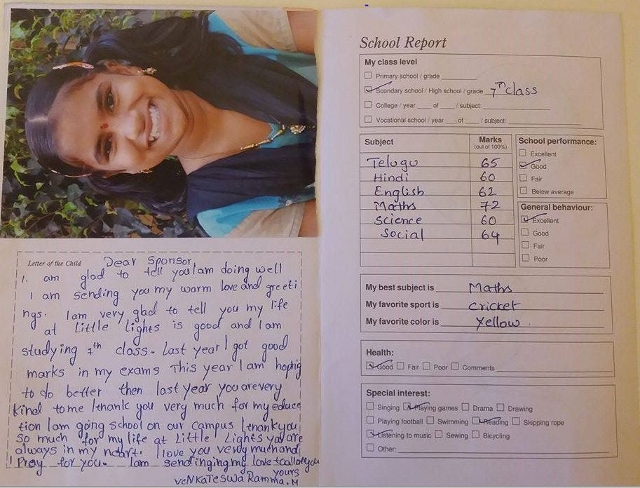 Letter of the Child
Dear Sponsor,
I am glad to tell you I am doing well
I am sending you my warm love and greeti
ngs. I am very glad to tell you my life
at Little Lights is good and I am
studying 7th class. Last year I got good
marks in my exams This year I am hoping
to do better then last year you are very
kind to me I thank you very much for my educa
tion I am going school on our campus I thank you
so much for my life at Little Lights you are
always in my heart. I love you very much and
I Pray for you. I am sending my love to all of you
yours
VENKATESWARAMMA. M
School Report
My class level
Primary school / grade
Secondary school / High school / grade 7th class
College / year ___ of ___ / subject:
Vocational school / year ___ of ___ / subject:
Subject Marks
(out of 100%)
Telugu 65
Hindi 60
English 62
Maths 72
Science 60
Social 64
School performance:
Excellent
Good
Fair
Below average
General behaviour:
Excellent
Good
Fair
Poor
My best subject is Maths
My favorite sport is cricket
My favorite color is Yellow.
Health:
Good Fair Poor Comments
Special interest:
Singing Playing games Drama Drawing
Playing football Swimming Reading Skipping rope
Listening to music Sewing Bicycling
Other: